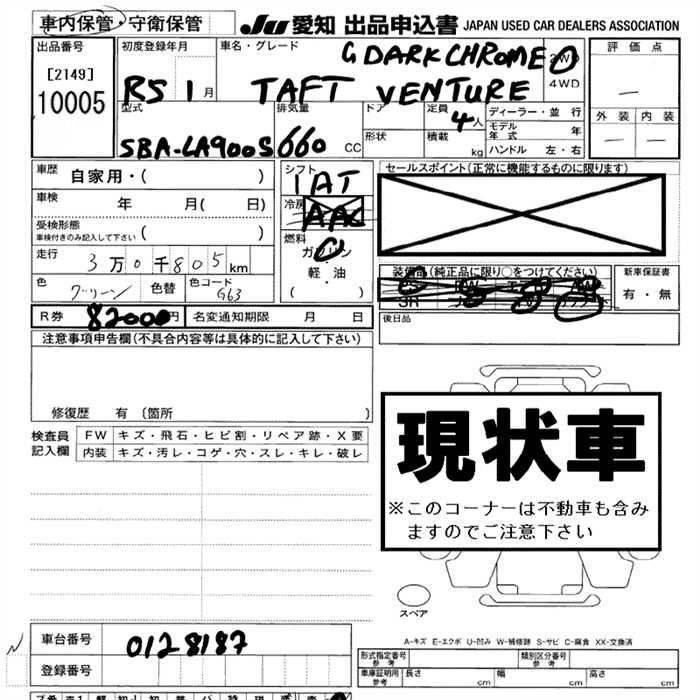 車内保管・守衛保管
JU 愛知 出品申込書 JAPAN USED CAR DEALERS ASSOCIATION
出品番号
[2149]
10005
初度登録年月
R5 1 月
車名・グレード
G DARK CHROME
TAFT VENTURE
2WD
4WD
評価点
—
外装 内装
— —
型式
5BA-LA900S
排気量
660 CC
ドア
形状
定員
4人
積載
kg
ディーラー・並行
モデル年式 年
ハンドル 左・右
車歴
自家用・( )
車検 年 月( 日)
受検形態
車検付きのみ記入して下さい ( )
走行
3万0千805km
色
グリーン
色替
色コード
G63
シフト
1AT
冷房
AAC
燃料
ガソリン
・
軽・油
( )
セールスポイント(正常に機能するものに限ります)
装備品(純正品に限り○をつけてください)
新車保証書
有・無
R券 82000円 名変通知期限 月 日
後日品
注意事項申告欄(不具合内容等は具体的に記入して下さい)
修復歴 有〔箇所 〕
検査員
記入欄
FW キズ・飛石・ヒビ割・リペア跡・X要
内装 キズ・汚レ・コゲ・穴・スレ・キレ・破レ
現状車
※このコーナーは不動車も含み
ますのでご注意下さい
スペア
A-キズ E-エクボ U-凹み W-補修跡 S-サビ C-腐食 XX-交換済
車台番号 0128187
登録番号
形式指定番号
参考
類別区分番号
参考
車庫証明用
参考
長さ cm 幅 cm 高さ cm